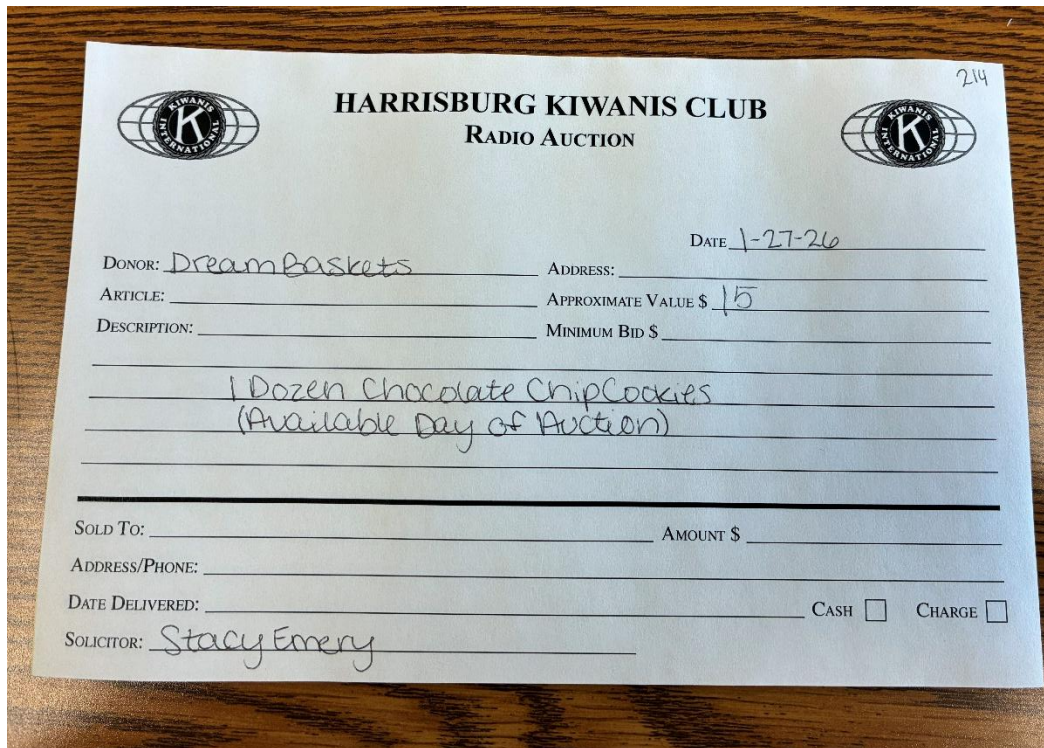 214
HARRISBURG KIWANIS CLUB
RADIO AUCTION
KIWANIS INTERNATIONAL K
KIWANIS INTERNATIONAL K
DATE 1-27-26
DONOR: Dream Baskets ADDRESS:
ARTICLE: APPROXIMATE VALUE $ 15
DESCRIPTION: MINIMUM BID $
1 Dozen Chocolate Chip Cookies
(Available Day of Auction)
SOLD TO: AMOUNT $
ADDRESS/PHONE:
DATE DELIVERED: CASH CHARGE
SOLICITOR: Stacy Emery